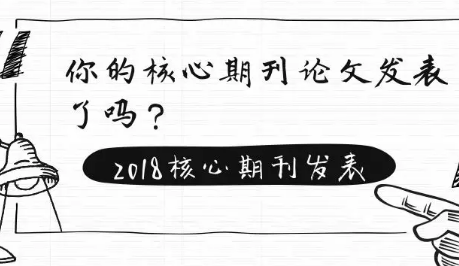 你的核心期刊论文发表
了吗？
2018核心期刊发表